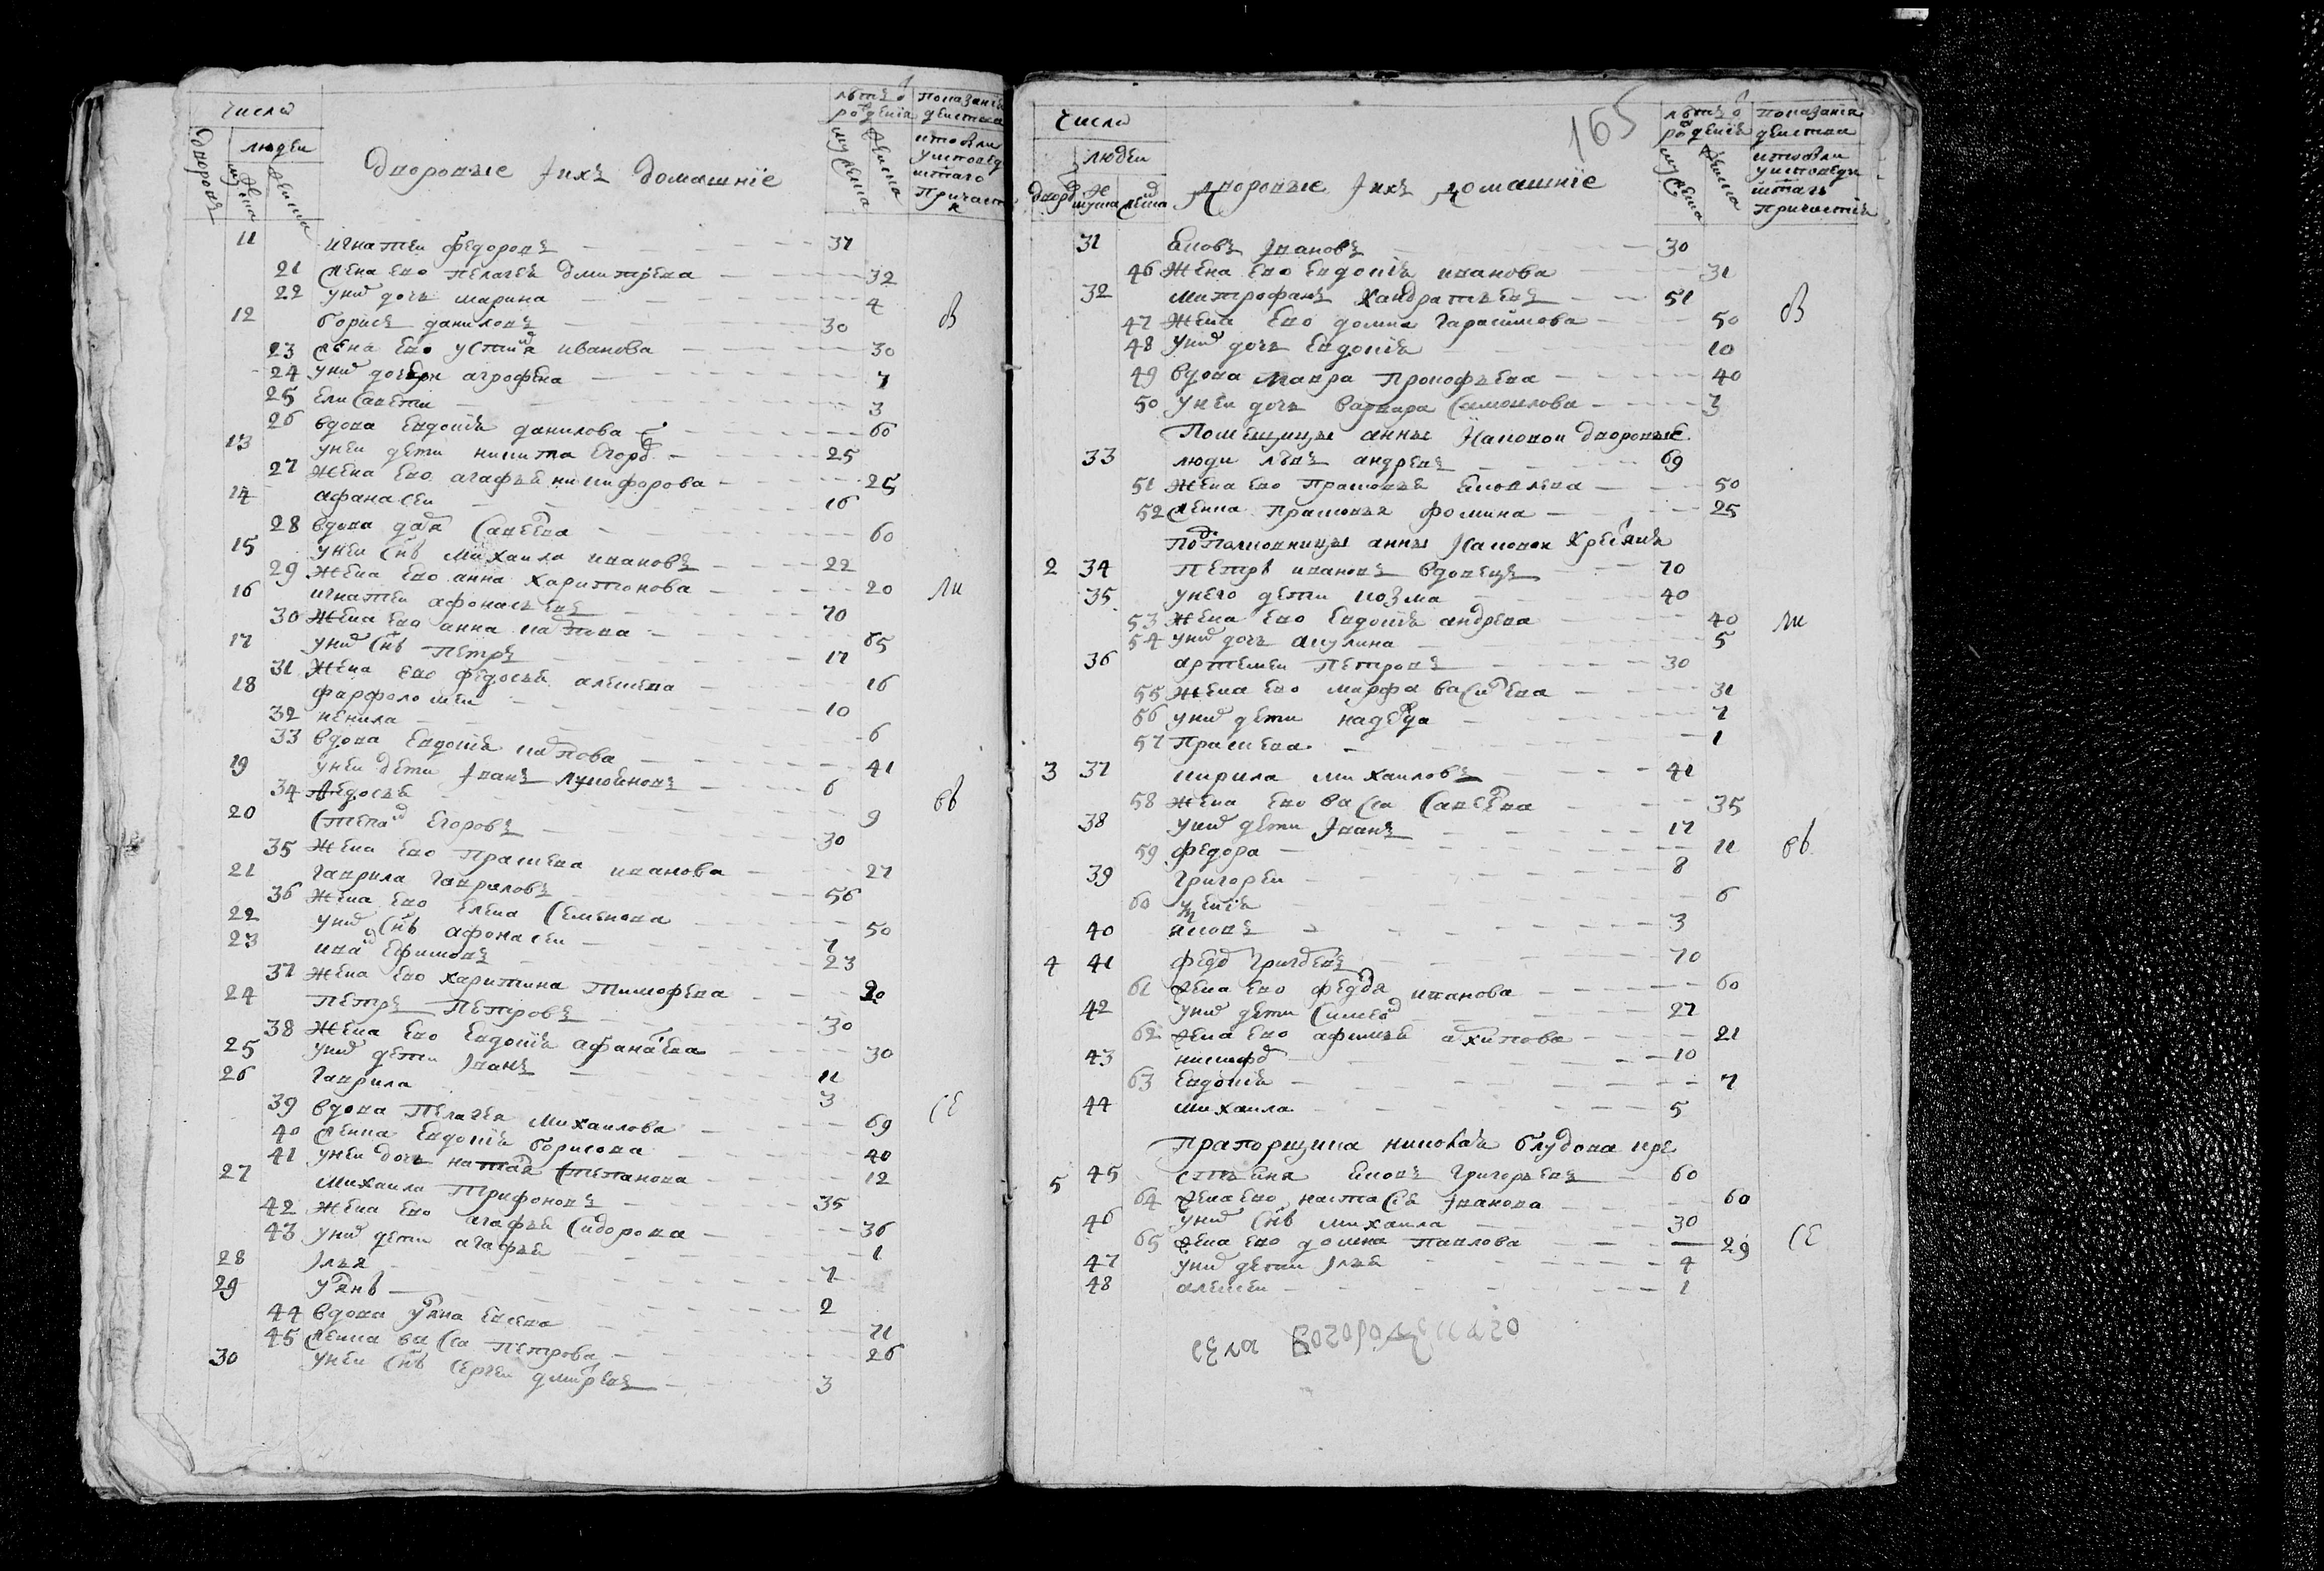 числа
людеи
дворовъ
мужеска
женска
Дворовые ихъ домашние
лѣтъ о рождения
мужеска
женска
Показание деиства
кто былъ у исповеди и с[вя]таго Причастия
11 игнатеи федоровъ 37
21 жена ево пелагея дмитрева 32
22 у них дочь марина 4
12 борисъ даниловъ 30
23 жена ево устинья иванова 30
24 у них дочери агрофена 7
25 елисавети 3
26 вдова евдокия данилова 60
13 у неи дети никита егоров 25
27 жена ево агафья никифорова 25
14 афанасеи 16
28 вдова дарья савелева 60
15 у неи снъ михаила ивановъ 22
29 жена ево анна харитонова 20
16 игнатеи афонасьевъ 70
30 жена ево анна карпова 65
17 у них снъ петръ 17
31 жена ево федосья алексева 16
18 фарфоломеи 10
32 ненила 6
33 вдова евдокия карпова 41
19 у неи дети иванъ лукьяновъ 6
34 федосья 9
20 степан егоровъ 30
35 жена ево прасковя иванова 27
21 гаврила гавриловъ 56
36 жена ево елена семенова 50
22 у них снъ афонасеи 7
23 иван ефимовъ 23
37 жена ево харитина тимофева 20
24 петръ петровъ 30
38 жена ево евдокия афанасева 30
25 у них дети иванъ 11
26 гаврила 3
39 вдова пелагея михаилова 69
40 женка евдокия борисова 40
41 у неи дочь наталья степанова 12
27 михаила трифоновъ 35
42 жена ево агафья сидорова 36
43 у них дети агафья 1
28 илья 7
29 ульянъ 2
44 вдова ульяна евсева 71
45 женка васса петрова 26
30 у неи снъ сергеи дмитревъ 3
165
числа
людеи
дворов
мужеска
женска
дворовые ихъ домашние
лѣтъ о рождения
мужеска
женска
Показания деиства
кто были у исповеди и с[вя]таго Причастия
31 яковъ ивановъ 30
46 жена ево евдокия иванова 31
32 митрофанъ кандратьевъ 51
47 жена ево домна гарасимова 50
48 у них дочь евдокия 10
49 вдова мавра прокофьева 40
50 у неи дочь варвара самоилова 3
Помещицы анны дворовые
33 люди львъ андревъ 69
51 жена ево прасковья яковлева 50
52 женка прасковья фомина 25
подполковницы анны крестьяне
2 34 петръ ивановъ вдовецъ 70
35 у него дети козма 40
53 жена ево евдокия андрева 40
54 у них дочь акулина 5
36 артемеи петровъ 30
55 жена ево марфа василева 31
56 у них дети надежда 7
57 прасковя 1
3 37 кирила михаиловъ 41
58 жена ево васса савелева 35
38 у них дети иванъ 17
59 федора 11
39 григореи 8
60 ксения 6
40 яковъ 3
4 41 федор григоревъ 70
61 жена ево федора иванова 60
42 у них дети симеон 27
62 жена ево афимья архипова 21
43 никифор 10
63 евдокия 7
44 михаила 5
Прапорщика николая блудова кре
5 45 стьяня яковъ григорьевъ 60
64 жена ево настасья иванова 60
46 у них снъ михаила 30
65 жена ево домна павлова 29
47 у них дети илья 4
48 алексеи 1
села Богородицкаго